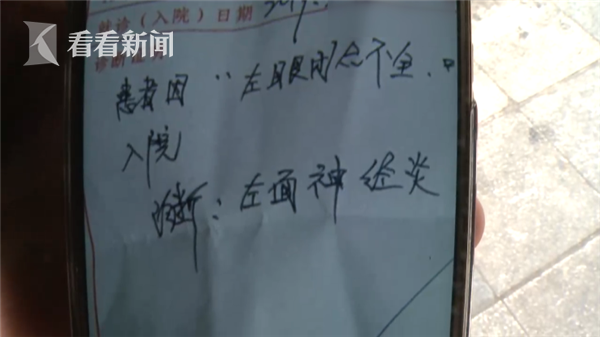 看看新闻
就诊（入院）日期
诊断
患者因"左眼闭合不全，
入院
诊断：左面神经炎